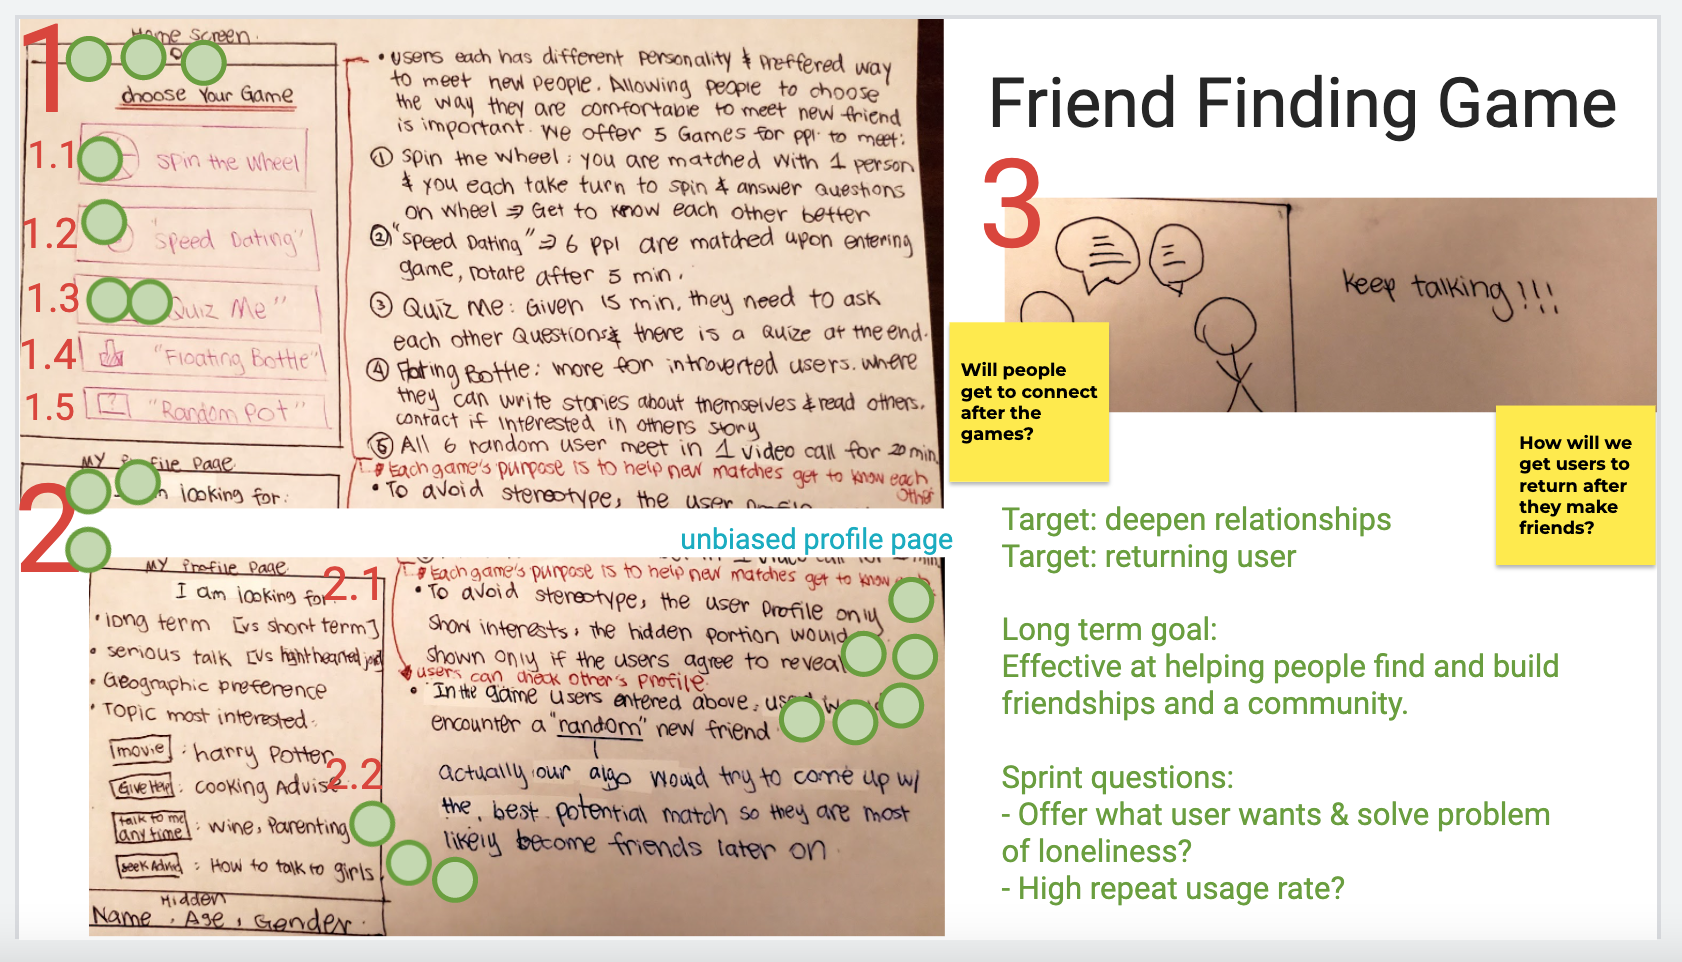 1
Home Screen.
choose Your Game
1.1
Spin the Wheel
1.2
"Speed Dating"
1.3
Quiz Me"
1.4
"Floating Bottle"
1.5
?
"Random Pot"
• users each has different personality & preffered way
to meet new people. Allowing people to choose
the way they are comfortable to meet new friend
is important. We offer 5 Games for ppl to meet:
① Spin the Wheel: you are matched with 1 person
& you each take turn to spin & answer questions
on wheel ⇒ Get to know each other better
② "Speed Dating" ⇒ 6 ppl are matched upon entering
game, rotate after 5 min.
③ Quiz Me: Given 15 min, they need to ask
each other Questions & there is a Quize at the end.
④ Floting Bottle: more for introverted users. where
they can write stories about themselves & read others.
contact if interested in others story
⑤ All 6 random user meet in 1 video call for 20 min.
Each game's purpose is to help new matches get to know each
other
• To avoid stereotype, the user
2
MY Profile Page
looking for:
unbiased profile page
MY Profile Page
2.1
I am looking for
• long term [vs short term]
• serious talk [vs light hearted
• Geographic preference
• Topic most interested:
movie : harry Potter
2.2
Give Help : cooking Advise
talk to me
any time : wine, Parenting
seek Advise : How to talk to girls
Hidden
Name, Age, Gender.
Each game's purpose is to help new matches get to know
• To avoid stereotype, the user profile only
show interests, the hidden portion would
shown only if the users agree to reveal
users can check other's profile.
• In the game users entered above,
encounter a "random" new friend
actually our algo would try to come up w/
the best potential match so they are most
likely become friends later on.
Friend Finding Game
3
keep talking!!!
Will people
get to connect
after the
games?
How will we
get users to
return after
they make
friends?
Target: deepen relationships
Target: returning user
Long term goal:
Effective at helping people find and build
friendships and a community.
Sprint questions:
- Offer what user wants & solve problem
of loneliness?
- High repeat usage rate?